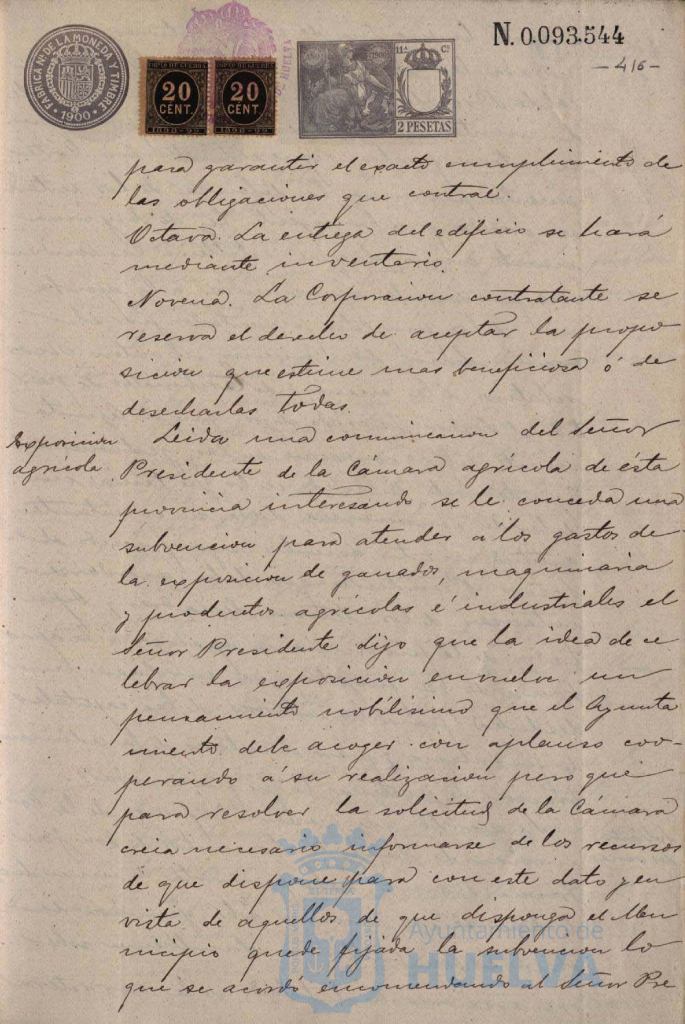 N. 0.093.544
- 416 -
FABRICA NAL DE LA MONEDA Y TIMBRE
1900
20 CENT.
1898-99
20 CENT.
1898-99
11ª Cª
2 PESETAS
para garantir el exacto cumplimiento de
las obligaciones que contrae.
Octava. La entrega del edificio se hará
mediante inventario.
Novena. La Corporacion contratante se
reserva el derecho de aceptar la propo
sicion que estime mas beneficiosa ó de
desecharlas todas.
Exposicion
agrícola
Leida una comunicacion del Señor
Presidente de la Cámara agrícola de ésta
provincia interesando se le conceda una
subvencion para atender á los gastos de
la exposicion de ganados, maquinaria
y productos agrícolas é industriales el
Señor Presidente dijo que la idea de ce
lebrar la exposicion envuelve un
pensamiento nobílisimo que el Ayunta
miento debe acoger con aplauso coo-
perando á su realizacion pero que
para resolver la solicitud de la Cámara
creia necesario informarse de los recursos
de que dispone para con este dato y en
vista de aquellos de que disponga el Mu
nicipio quede fijada la subvencion lo
que se acordó encomendando al Señor Pre
Ayuntamiento de
HUELVA